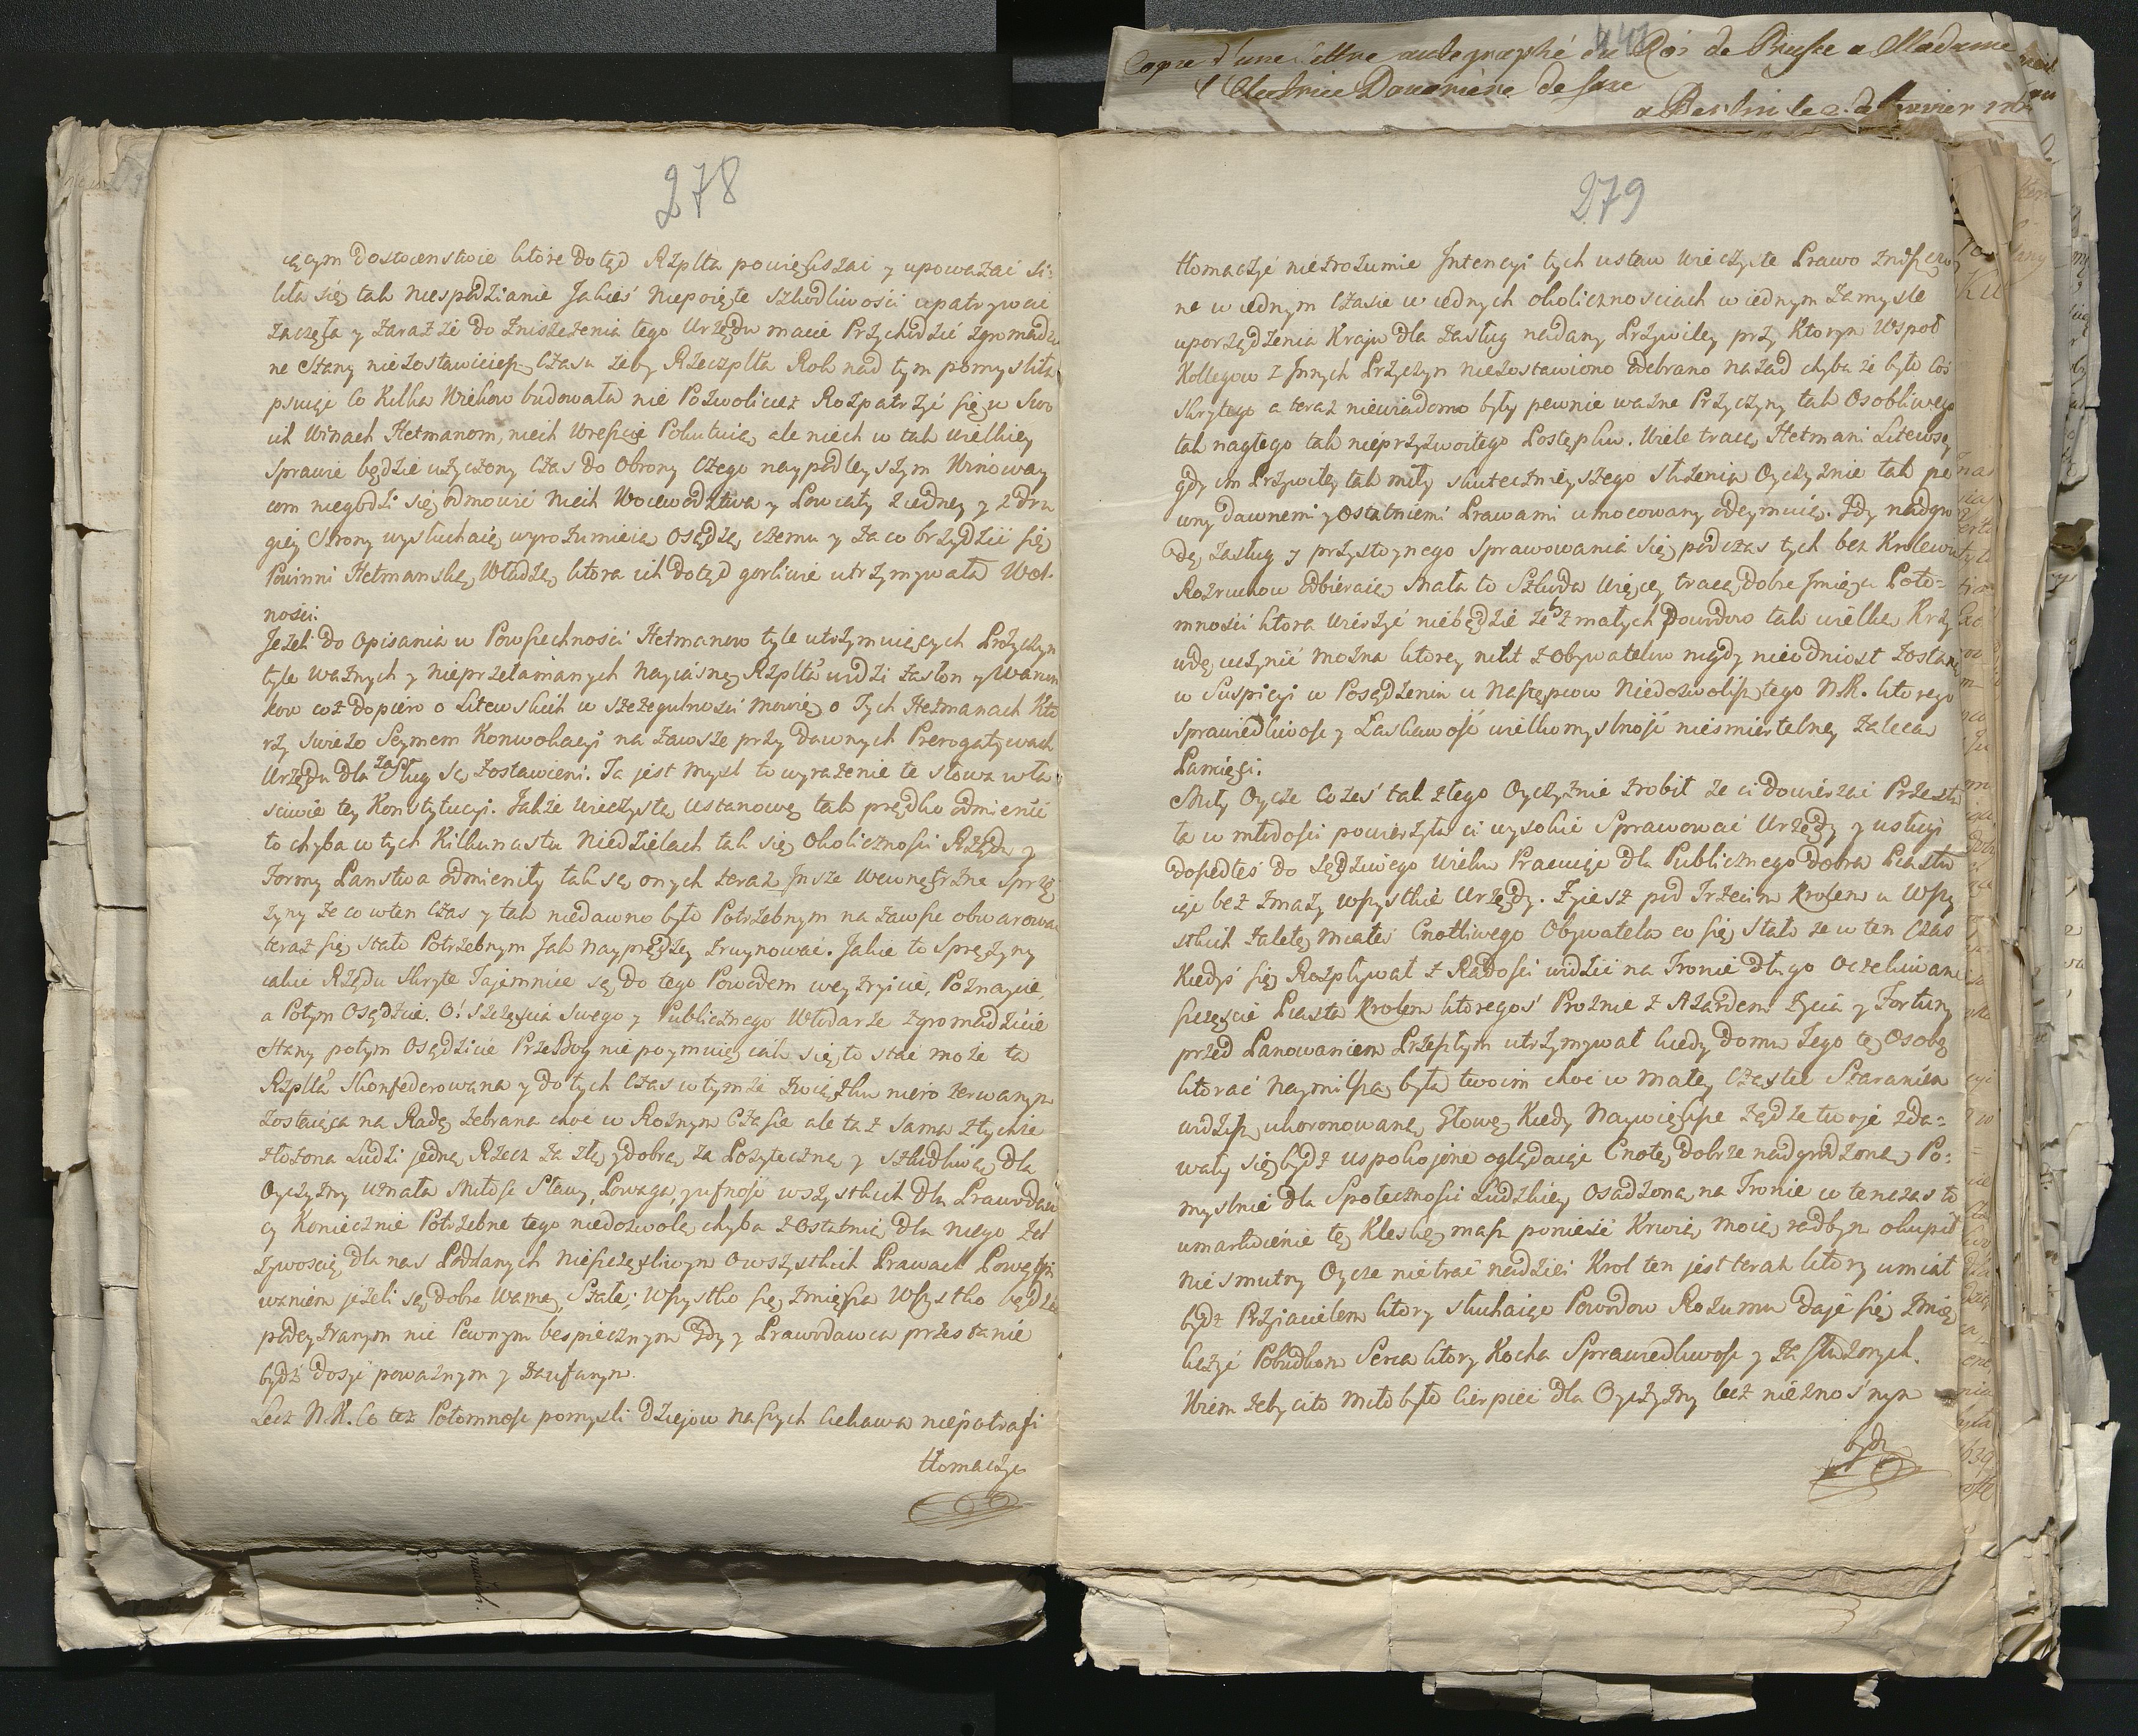 278
ięcym dostoienstwie które dotąd Rzplta powiększać y upoważać si-
liła się tak niespodzianie Jakieś niepoięte szkodliwości upatrywać
zaczęła y zaraz że do zniszczenia tego Urzędu macie Przychodzić zgromadzo
ne Stany niezostawiciesz Czasu zeby Rzeczplta Rok nad tym pomysliła
psuiąc Co Kilka Wiekow budowała nie Pozwolicież Rozpatrzyć się w Swo
ich Winach Hetmanom, niech Wreszcie Pokutuią, ale niech w tak wielkiey
Sprawie będzie użyczony Czas do Obrony Czego naypodleyszym Winoway
com niegodzi się odmowić niech Woiewodztwa y Powiaty z iedney y z dru
giey Strony wysłuchaią, wyrozumieią, Osądzą, czemu y za co brzydzić się
Powinni Hetmanską Władzą, ktora ich dotąd gorliwie utrzymywała Wol-
ności.
Jeżeli do Opisania w Powszechności Hetmanow tyle utrzymuiących Przyczyn
tyle ważnych y nieprzełamanych Nayiaśn. Rzplta widzi zasłon y Warun
kow coż dopiero o Litewskich w szczegulności mowię, o Tych Hetmanach Kto
rzy swieżo Seymem Konwokacyi na zawsze przy dawnych Prerogatywach
Urzędu dla Zasług są zostawieni. Ta jest mysl to wyrażenie te słowa wła
sciwie tey Konstytucyi. Jakże wieczystą Ustanowę tak prędko odmienić
to chyba w tych Kilkunastu Niedzielach tak się Okoliczności Rządu y
Formy Panstwa odmieniły tak są onych teraz Insze Wewnętrzne Sprę
żyny że co wten Czas y tak niedawno było Potrzebnym na zawsze obwarować
teraz się stało Potrzebnym Jak nayprędzey zruynować. Jakie to Sprężyny
iakie Rządu Skryte Tajemnice są do tego Powodem weyzrzycie, Poznaycie,
a Potym Osądźcie. O! szczęscia Swego y Publicznego Włodarze zgromadzcie
Stany potym Osądzicie PrzeBog niepoymuię iak się to stać może ta
Rzplta Skonfederowana y do tych Czas w tymże związku nierozerwanym
zostaiąca na Radę zebrana choć w Rożnym Czasie ale taż sama z tychże
złożona Ludzi jedną Rzecz za złą y dobrą za Pożyteczną y szkodliwą dla
Oyczyzny uznała Miłość Sławy, Powaga, y ufność wszystkich dla Prawodaw
cy Koniecznie Potrzebne tego niedozwolą chyba z Ostatnią dla niego Zel
żywoscią dla nas Poddanych nieszczęsliwym O wszystkich Prawach Powątpi
waniem jeżeli są dobre Ważne, Stałe; Wszystko się zmiesza Wszystko będzie
podeyzranym nic Pewnym bespiecznym Gdy y Prawodawca przestanie
bydź dosyć poważnym y zaufanym.
Lecz N.K. Co też Potomność pomysli dziejow naszych Ciekawa niepotrafi
tłomaczyć
279
tłomaczyć niezrozumie Intencyi tych ustaw wieczyste Prawo zniszczo
ne w iednym Czasie w iednych okolicznosciach w iednym zamysle
uporządzenia Kraju dla zasług nadany Przywiley przy Ktorym Wspoł
Kollegow z Innych Przyczyn niezostawiono Odebrano nazad chyba że było Coś
Skrytego a teraz niewiadomo były pewnie ważne Przyczyny tak Osobliwego
tak nagłego tak nieprzyzwoitego Postępku. Wiele tracą Hetmani Litewscy
gdy im Przywiley tak miły skutecznieyszego służenia Oyczyznie tak pe
wny dawnemi y Ostatniemi Prawami umocowany odeymuią. Gdy nadgro
odę zasług y przystoynego sprawowania się podczas tych bez Krolewia
Rozruchow odbieraią Mała to Szkoda Więcey tracą dobre Imię u Poto-
mności ktora wierzyć niebędzie żeb z małych Powodow tak wielką Krzy
wdę uczynić można ktorey nikt z Obywatelow nigdy nieodniosł zostaną
w Suspicyi w Posądzeniu u Następcow Niedozwolisz tego N.K. ktorego
sprawiedliwość y Łaskawość wielkomyslność niesmiertelney zaleca
Pamięci.
Miły Oycze Cożeś tak złego Oyczyznie zrobił że ci dowierzać Przesta
ła w młodości powierzyła ci wysokie Sprawować Urzędy y usługi
doszedłeś do Sędziwego Wieku Pracuiąc dla Publicznego dobra Piastu
iąc bez zmazy wszystkie Urzędy. Żyiesz pod Trzecim Krolem u Wszy
stkich zaletę miałeś Cnotliwego Obywatela co się stało że w ten Czas
Kiedyś się Rozpływał z Radości widzieć na Tronie długo Oczekiwane
szczęscie Piasta Krolem ktoregoś Prożnie z Azardem życia y Fortuny
przed Panowaniem Przeszłym utrzymywał kiedy domu Jego tę Osobę
ktorać naymilszą była twoim choć w małey Cząstce Staraniem
widzisz ukoronowaną Głowę Kiedy Naywiększe żądze twoje zda-
wały się bydź uspokojone oglądaiąc Cnotę dobrze nadgrodzoną Po-
myslnie dla Społeczności Ludzkiey Osadzoną na Tronie w tenczas to
umartwienie tę Klęskę masz ponieść Krwią moią radbym okupił
nie smutny Oycze nietrać nadziei Krol ten jest teraz ktory umiał
bydź Przyiacielem ktory słuchaiąc Powodow Rozumu daje się zmięk
czyć Pobudkom Serca ktory Kocha Sprawiedliwość y zasłużonych.
Wiem żeby ci to miło było Cierpieć dla Oyczyzny lecz nieznośnym
bydź
447
Copie d'une Lettre autographé du Roi de Prusse a Madame
l'Electrice Douariere de Saxe
a Berlin le 2. de Janvier